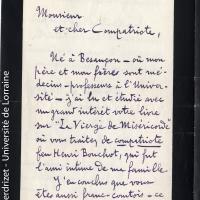 Monsieur
et cher Compatriote,
Né à Besançon – où mon
père et mon frère sont mé-
decins - professeurs à l'Univer-
sité – j'ai lu et étudié avec
un grand intérêt votre livre
sur "La Vierge de Miséricorde"
où vous traitez de compatriote
feu Henri Bouchot, qui fut
l'ami intime de ma famille.
J'en conclus que vous
êtes aussi franc-comtois – ce
erdrizet - Université de Lorraine